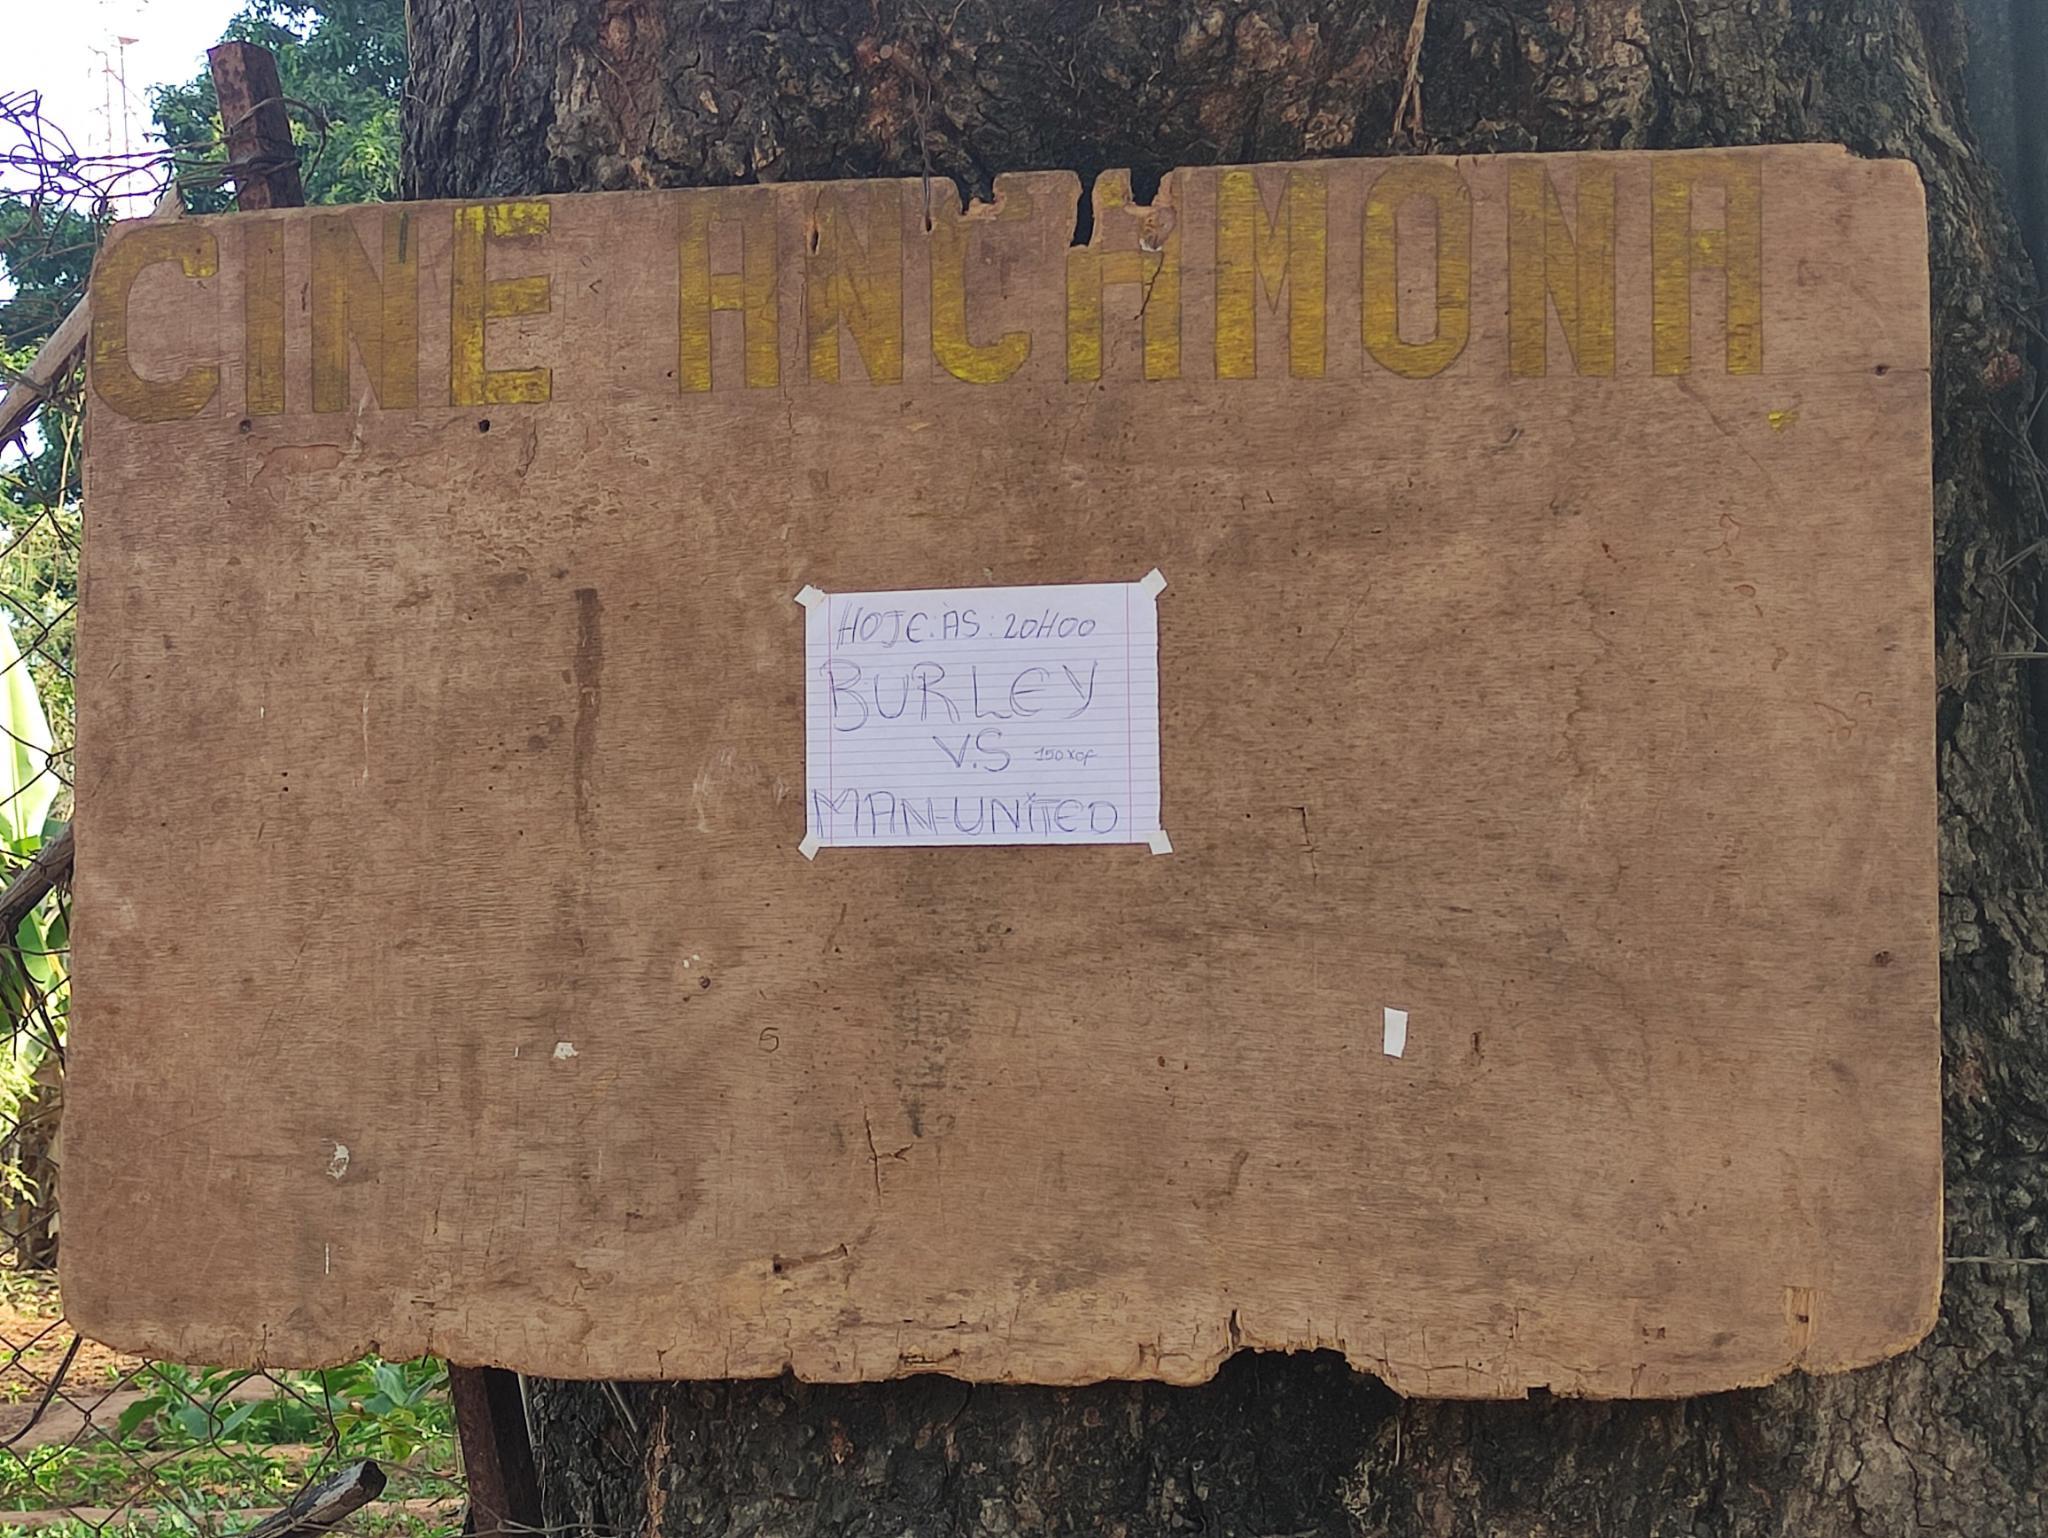 CINE ANCHMONA
HOJE.ÀS: 20H00
BURLEY
V.S 150XOF
MAN-UNITED
5